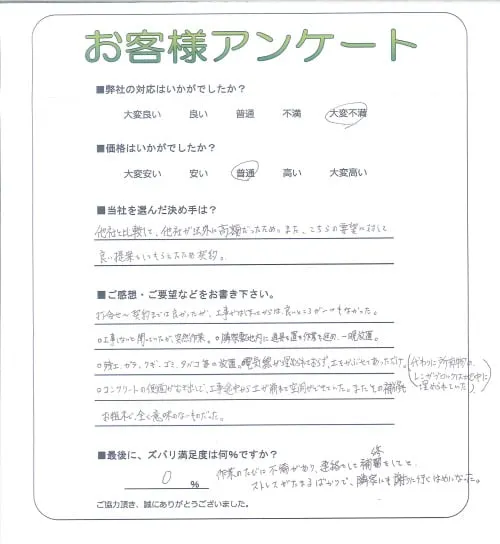 お客様アンケート
■弊社の対応はいかがでしたか？
大変良い 良い 普通 不満 大変不満
■価格はいかがでしたか？
大変安い 安い 普通 高い 大変高い
■当社を選んだ決め手は？
他社と比較して、他社が法外に高額だったため。また、こちらの要望に対して
良い提案をしてもらえたため契約。
■ご感想・ご要望などをお書き下さい。
打合せ〜契約までは良かったが、工事がはじまってからは良いところが一つもなかった。
○工事しないと聞いていたが、突然作業。○隣家敷地内に道具を置き作業を進め、一晩放置。
○残土、ガラ、クギ、ゴミ、タバコ等の放置。電気線が埋められておらず、土をかぶせてあっただけ。
(代わりに所有物のレンガブロックは地中に埋められていた)
○コンクリートの側面がむき出しで、工事途中から土が崩れて空洞ができていた。またその補修
お粗末で、全く意味のないものだった。
■最後に、ズバリ満足度は何％ですか？
0 %
作業のたびに不備があり、連絡をして補修をしてと、
ストレスがたまるばかりで、隣家にも謝りに行くはめになった。
ご協力頂き、誠にありがとうございました。